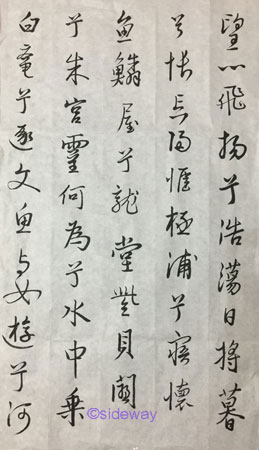 望心飛揚兮浩蕩日將暮
兮悵忘歸惟極浦兮寤懷
魚鱗屋兮龍堂紫貝闕
兮朱宮靈何為兮水中乗
白黿兮逐文魚与女遊兮河
©sideway